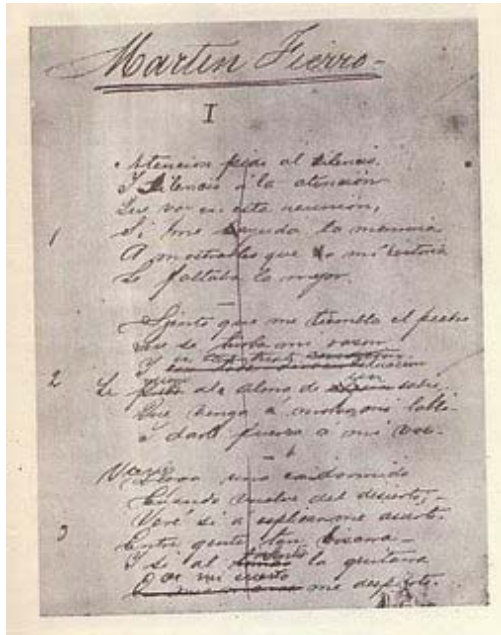 Martin Fierro-
I
Atencion pido al silencio
Y Silencio a la atención
Que voy en esta reunión,
1 Si me ayuda la memoria
A mostrarles que a mi historia
Le faltaba lo mejor.
Siento que me tiembla el pecho
se turba mi razon
Y
2 Le al alma de sabio
Que venga á mi labio
á dar fuerza á mi voz-
Viene uno como dormido
Cuando vuelve del desierto,-
Veré si a esplicarme acierto
3 Entre gente tan bizarra-
Y si al sentir la guitarra
De mi me despierto.